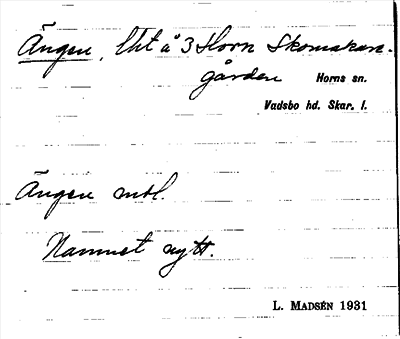 Ängen, lht å 3 Horn Skomakare-
gården Horns sn.
Vadsbo hd. Skar. l.
Ängen mbl.
Namnet nytt.
L. MADSÉN 1931